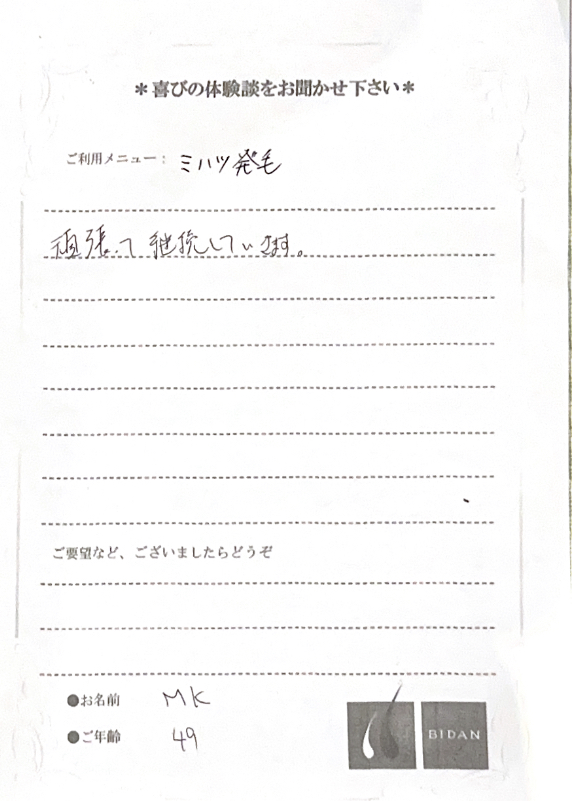 ＊喜びの体験談をお聞かせ下さい＊
ご利用メニュー： ミハツ発毛
頑張って継続しています。
ご要望など、ございましたらどうぞ
●お名前 MK
●ご年齢 49
BIDAN